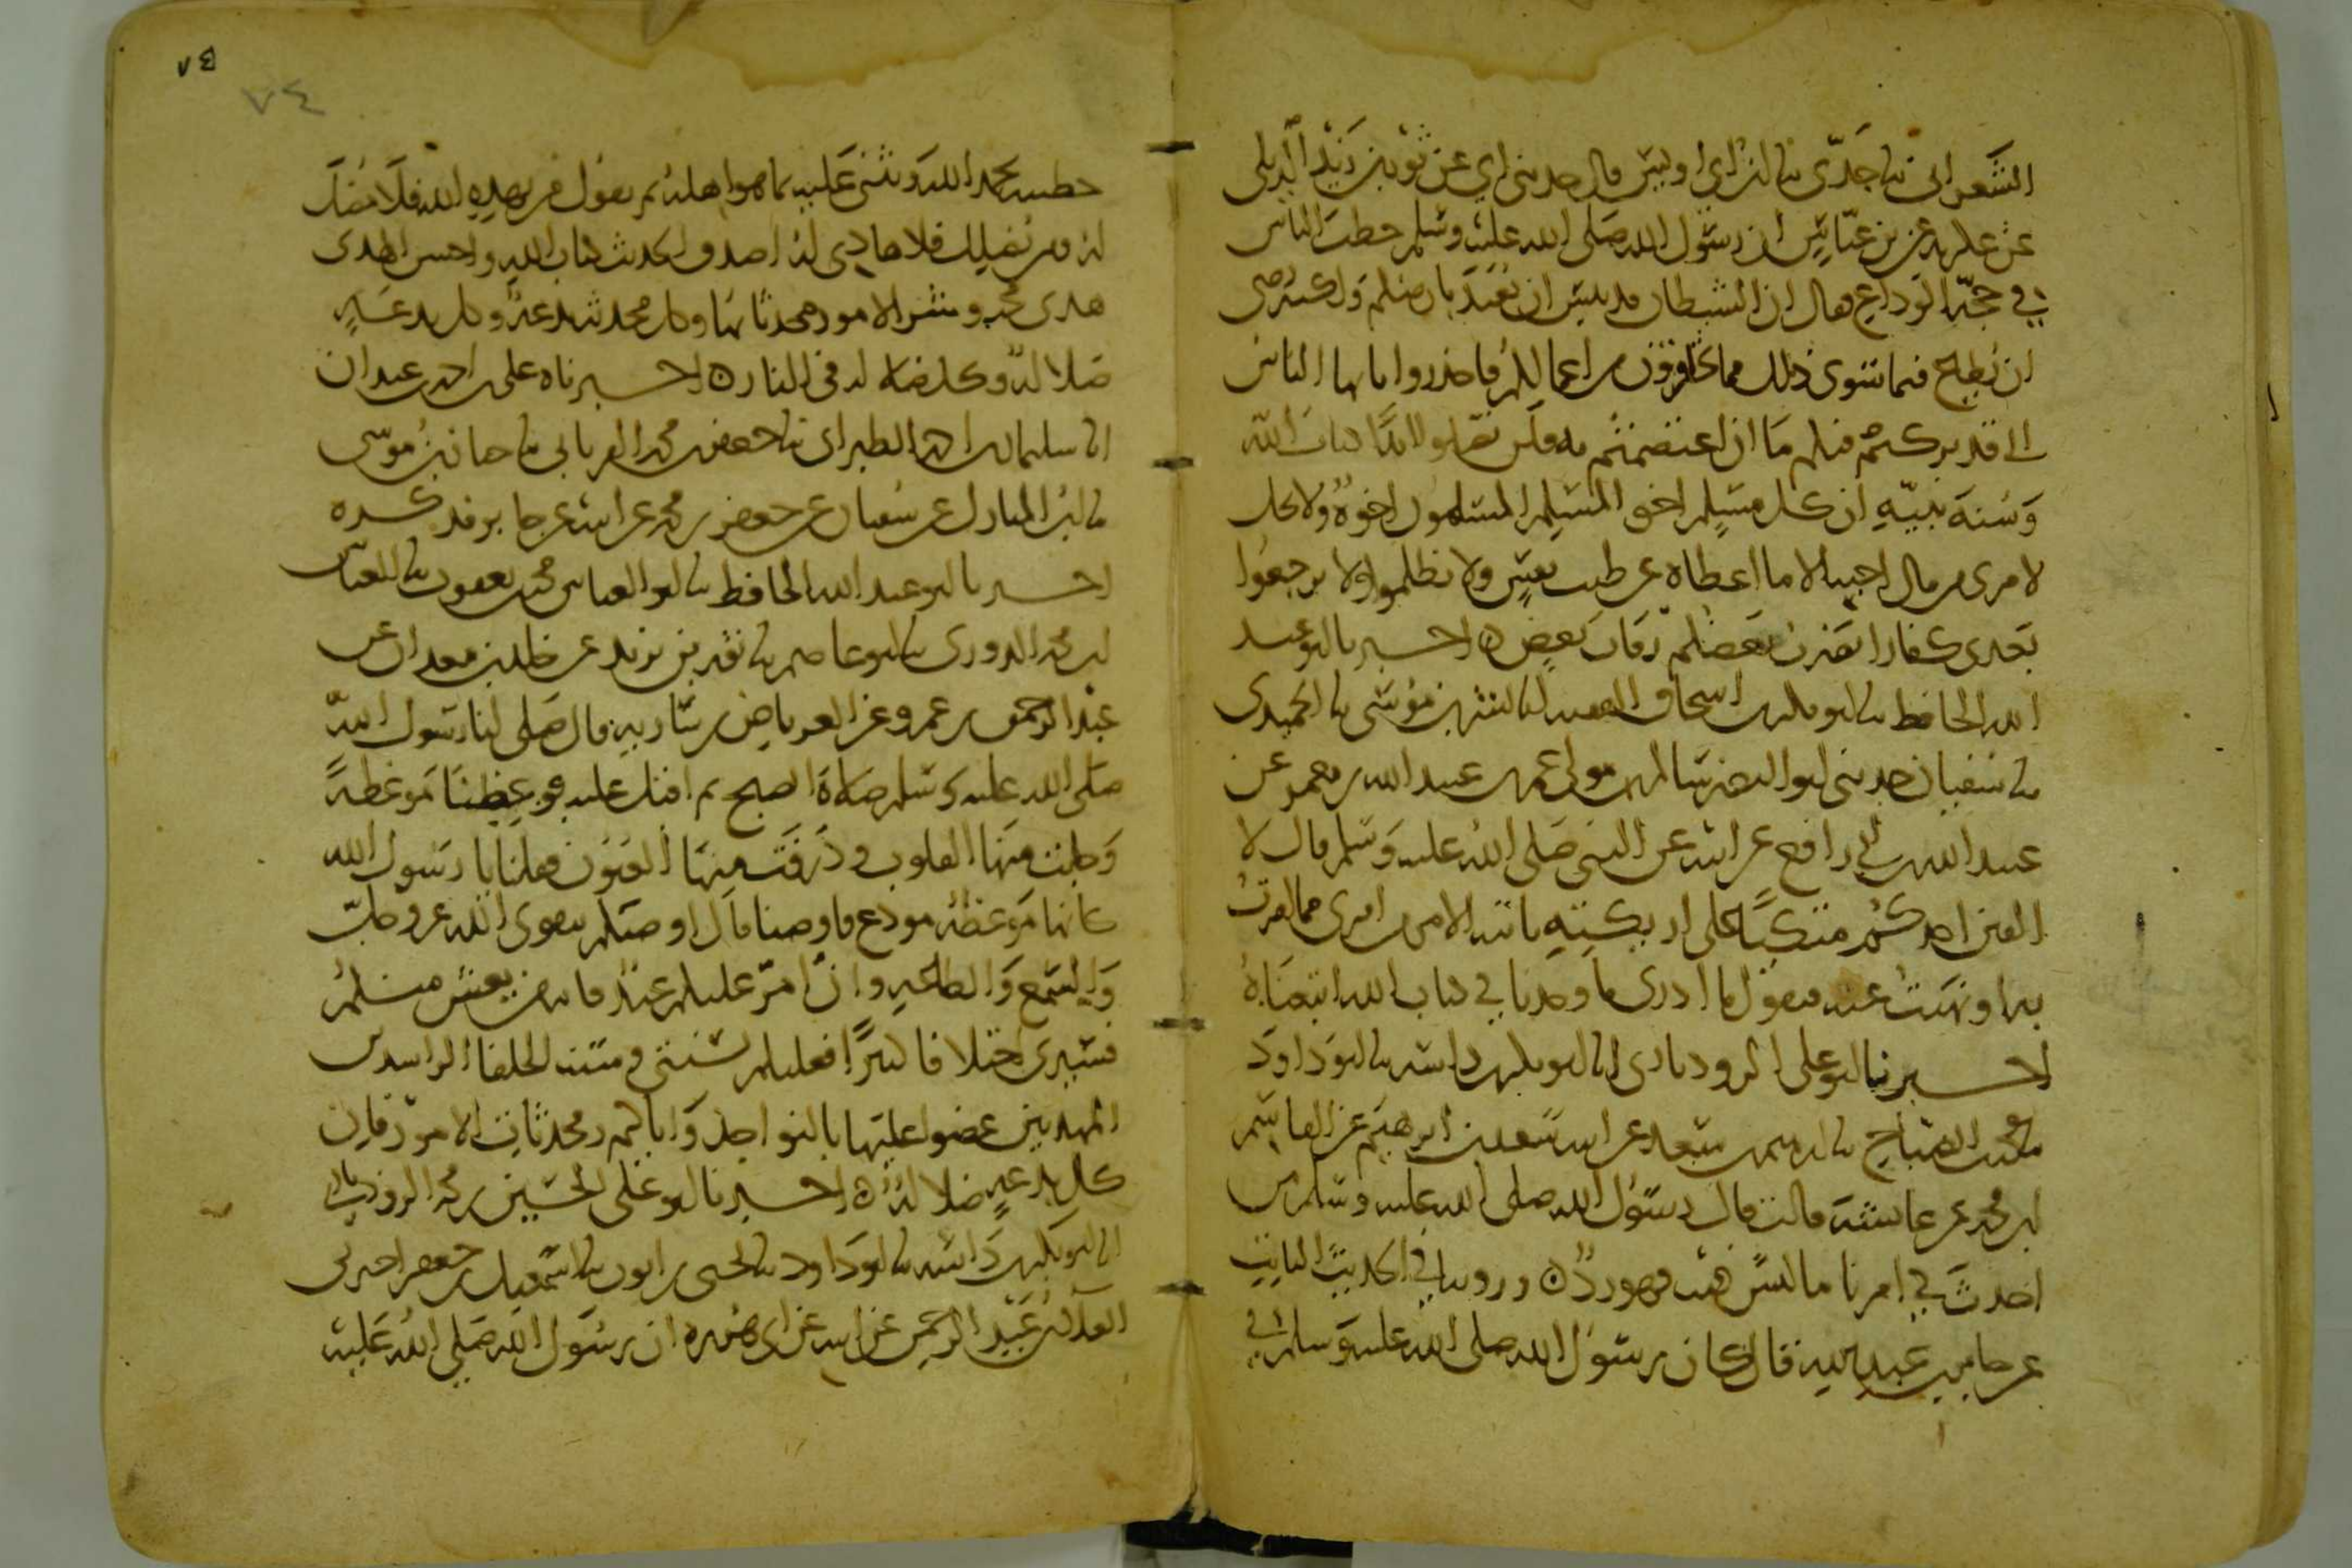 الشعراني ثنا جدي ثنا ابن ابي اويس قال حدثني ابي عن ثور بن زيد الديلي
عن عكرمة عن بن عباس ان رسول الله صلى الله عليه وسلم خطب الناس
في حجة الوداع فقال ان الشيطان قد يئس ان يعبد بارضكم ولكنه رضي
ان يطاع فيما سوى ذلك مما تحاقرون من اعمالكم فاحذروا يا ايها الناس
اني قد تركت فيكم ما ان اعتصمتم به فلن تضلوا ابدا كتاب الله
وسنة نبيه ان كل مسلم اخو المسلم المسلمون اخوة ولا يحل
لامرئ من مال اخيه الا ما اعطاه عن طيب نفس ولا تظلموا ولا ترجعوا
بعدي كفارا يضرب بعضكم رقاب بعض ه اخبرنا ابو عبد
الله الحافظ ثنا ابو بكر بن اسحاق الفقيه ابنا بشر بن موسى ثنا الحميدي
ثنا سفيان حدثني ابو النضر سالم مولى عمر بن عبيد الله بن معمر عن
عبيد الله بن ابي رافع عن ابيه عن النبي صلى الله عليه وسلم قال لا
الفين احدكم متكئا على اريكته ياتيه الامر من امري مما امرت
به او نهيت عنه فيقول ما ادري ما وجدنا في كتاب الله اتبعناه
اخبرنا ابو علي الروذباري ابنا ابو بكر بن داسه ثنا ابو داود
ثنا محمد بن الصباح ثنا ابرهيم بن سعد عن ابيه سعد بن ابرهيم عن القاسم
بن محمد عن عائشة قالت قال رسول الله صلى الله عليه وسلم من
احدث في امرنا ما ليس فيه فهو رد ه وروينا في الحديث الثابت
عن جابر بن عبد الله قال كان رسول الله صلى الله عليه وسلم في
٧٤
خطبته يحمد الله ويثني عليه بما هو اهله ثم يقول من يهده الله فلا مضل
له ومن يضلل فلا هادي له اصدق الحديث كتاب الله واحسن الهدى
هدى محمد وشر الامور محدثاتها وكل محدثة بدعة وكل بدعة
ضلالة وكل ضلالة في النار ه اخبرناه علي بن احمد بن عبدان
ابنا سليمان بن احمد الطبراني ثنا جعفر بن محمد الفريابي ثنا حبان بن موسى
ثنا ابن المبارك عن سفيان عن جعفر بن محمد عن ابيه عن جابر فذكره
اخبرنا ابو عبد الله الحافظ ثنا ابو العباس محمد بن يعقوب ثنا العباس
بن محمد الدوري ثنا ابو عاصم ثنا ثور بن يزيد عن خالد بن معدان عن
عبد الرحمن بن عمرو عن العرباض بن سارية قال صلى لنا رسول الله
صلى الله عليه وسلم صلاة الصبح ثم اقبل علينا فوعظنا موعظة
وجلت منها القلوب وذرفت منها العيون فقلنا يا رسول الله
كانها موعظة مودع فاوصنا قال اوصيكم بتقوى الله عز وجل
والسمع والطاعة وان امر عليكم عبد فانه من يعش منكم
فسيرى اختلافا كثيرا فعليكم بسنتي وسنة الخلفا الراشدين
المهديين عضوا عليها بالنواجذ واياكم ومحدثات الامور فان
كل بدعة ضلالة ه اخبرنا ابو علي الحسين بن محمد الروذباري
ابنا ابو بكر بن داسه ثنا ابو داود ثنا يحيى بن ايوب ثنا اسمعيل بن جعفر اخبرني
العلاء بن عبد الرحمن عن ابيه عن ابي هريرة ان رسول الله صلى الله عليه